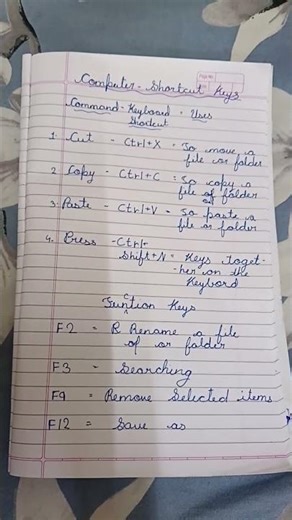 Computer - Shortcut Keys
Command - Keyboard - Uses
Shortcut
1. Cut - Ctrl+X = To move a
file or folder
2. Copy - Ctrl+C = To copy a
file of folder
or
3. Paste - Ctrl+V = To paste a
file or folder
4. Press - Ctrl+
Shift+N = Keys toget-
-her on the
Keybord
Function Keys
F2 = R Rename a file
of or folder
F3 = Searching
F9 = Remove Selected items
F12 = Save as